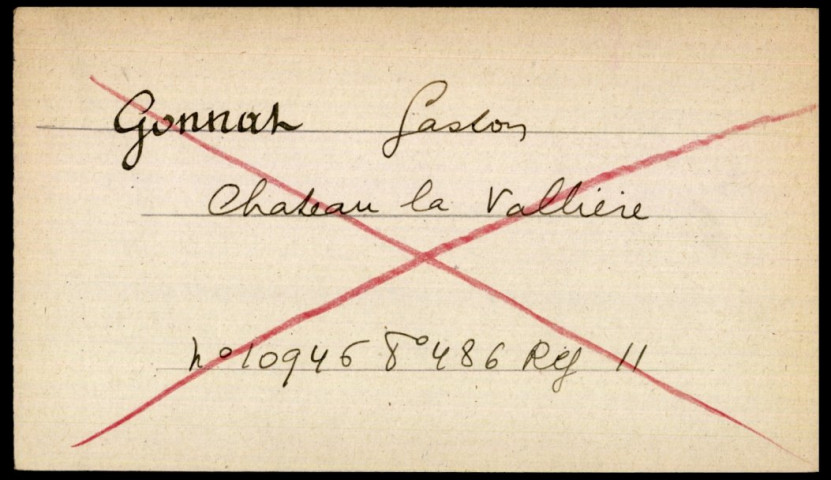 Gonnat Gaston
Chateau la Valliere
no 10946 fo 486 Reg 11